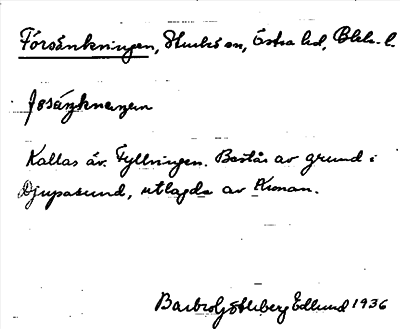 Försänkningen, Sturkö sn, Östra hd, Blek. l.
fosäŋknenen
Kallas äv. Fyllningen. Består av grund i
Djupasund, utlagda av Kronan.
Barbro Götheberg Edlund 1936